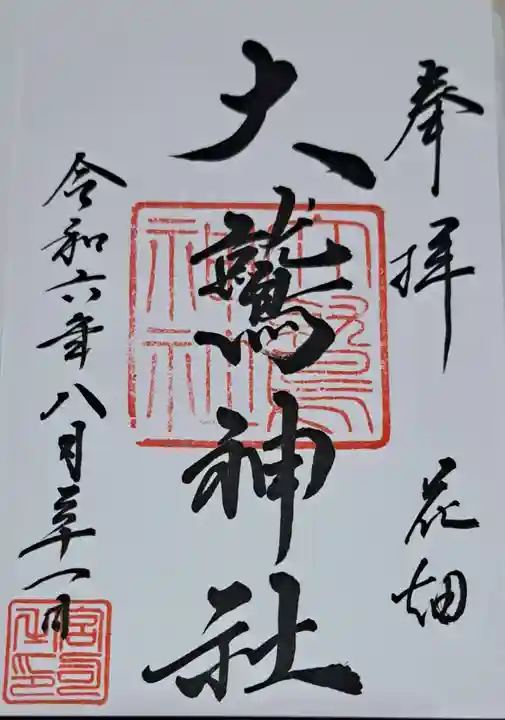 奉拝 花畑
大鷲神社
令和六年八月三十一日